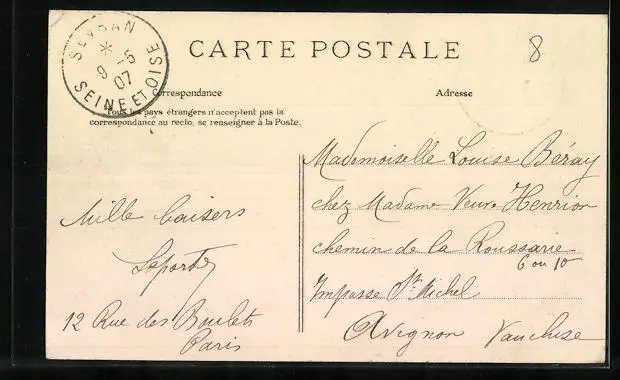 CARTE POSTALE
8
SEVRAN
8 -5
07
SEINE ET OISE
Correspondance
Adresse
Tous les pays étrangers n'acceptent pas la
correspondance au recto, se renseigner à la Poste.
Mademoiselle Louise Béray
chez Madame Veuve Henrion
chemin de la Roussarie
6 ou 10
Impasse St Michel
Avignon Vaucluse
Mille baisers
12 Rue des Boulets
Paris